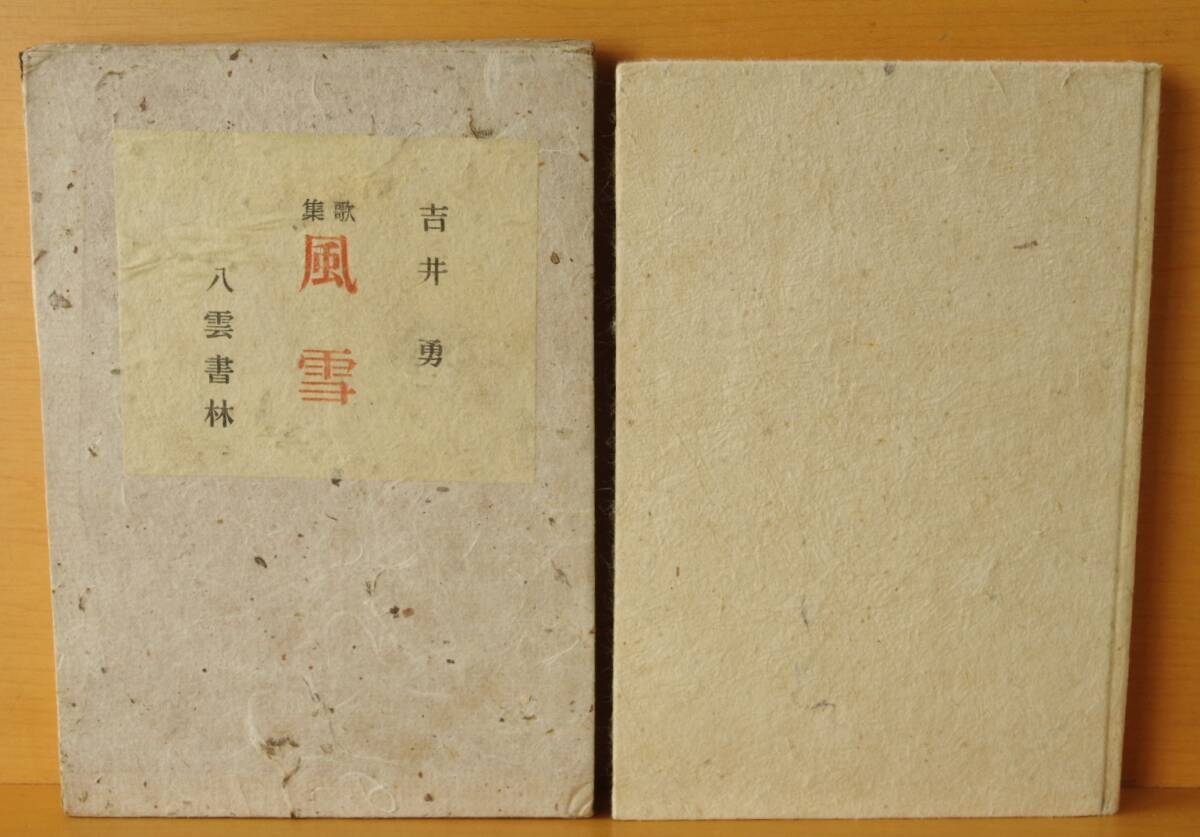 吉井勇
歌集
風雪
八雲書林